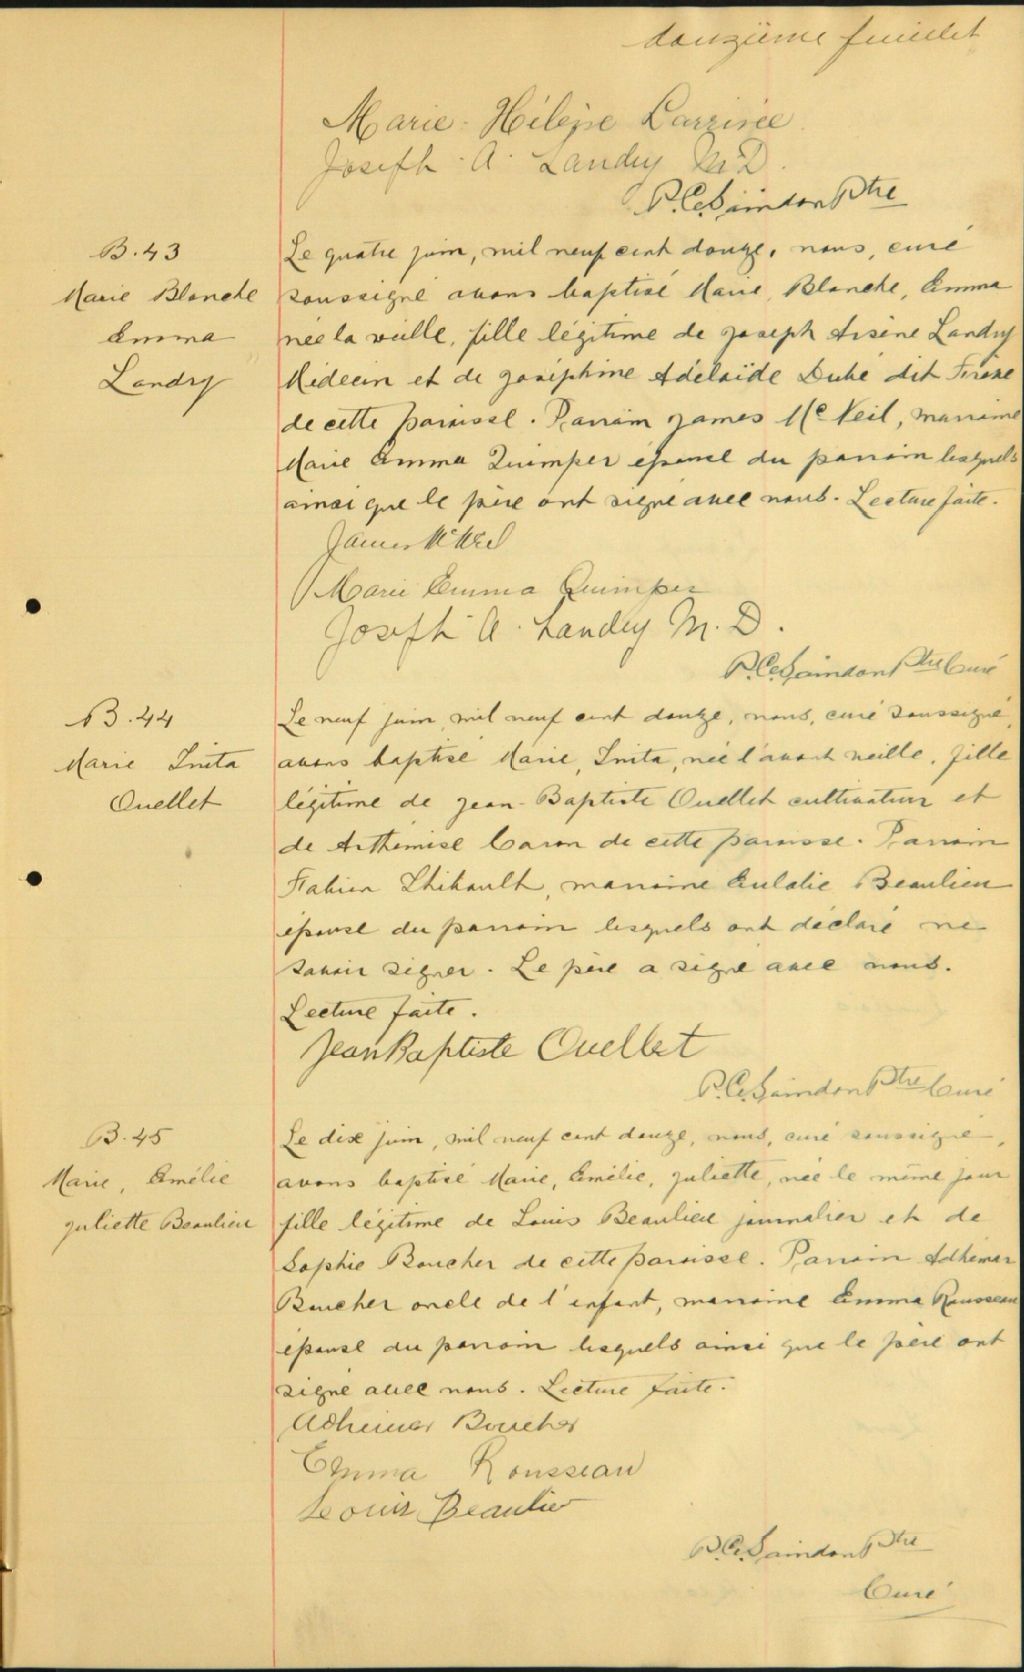 douzième feuillet
Marie-Hélène Larrivée
Joseph A. Landry M.D.
P.C. Saindon Ptre
B.43
Marie Blanche
Emma
Landry
Le quatre juin, mil neuf cent douze, nous, curé
soussigné avons baptisé Marie, Blanche, Emma
née la veille, fille légitime de Joseph Arsène Landry
Médecin et de Joséphine Adélaïde Dubé dit Firme
de cette paroisse. Parrain James Mc Neil, marraine
Marie Emma Quimper épouse du parrain lesquels
ainsi que le père ont signé avec nous. Lecture faite.
James McNeil
Marie Emma Quimper
Joseph A. Landry M.D.
P.C. Saindon Ptre Curé
B.44
Marie Inita
Ouellet
Le neuf juin, mil neuf cent douze, nous, curé soussigné,
avons baptisé Marie, Inita, née l'avant veille, fille
légitime de Jean-Baptiste Ouellet cultivateur et
de Arthémise Caron de cette paroisse. Parrain
Fabien Thibault, marraine Eulalie Beaulieu
épouse du parrain lesquels ont déclaré ne
savoir signer. Le père a signé avec nous.
Lecture faite.
Jean Baptiste Ouellet
P.C. Saindon Ptre Curé
B.45
Marie, Emélie
Juliette Beaulieu
Le dix juin, mil neuf cent douze, nous, curé soussigné,
avons baptisé Marie, Emélie, Juliette, née le même jour
fille légitime de Louis Beaulieu journalier et de
Sophie Boucher de cette paroisse. Parrain Adhémar
Boucher oncle de l'enfant, marraine Emma Rousseau
épouse du parrain lesquels ainsi que le père ont
signé avec nous. Lecture faite.
Adhemar Boucher
Emma Rousseau
Louis Beaulieu
P.C. Saindon Ptre
Curé